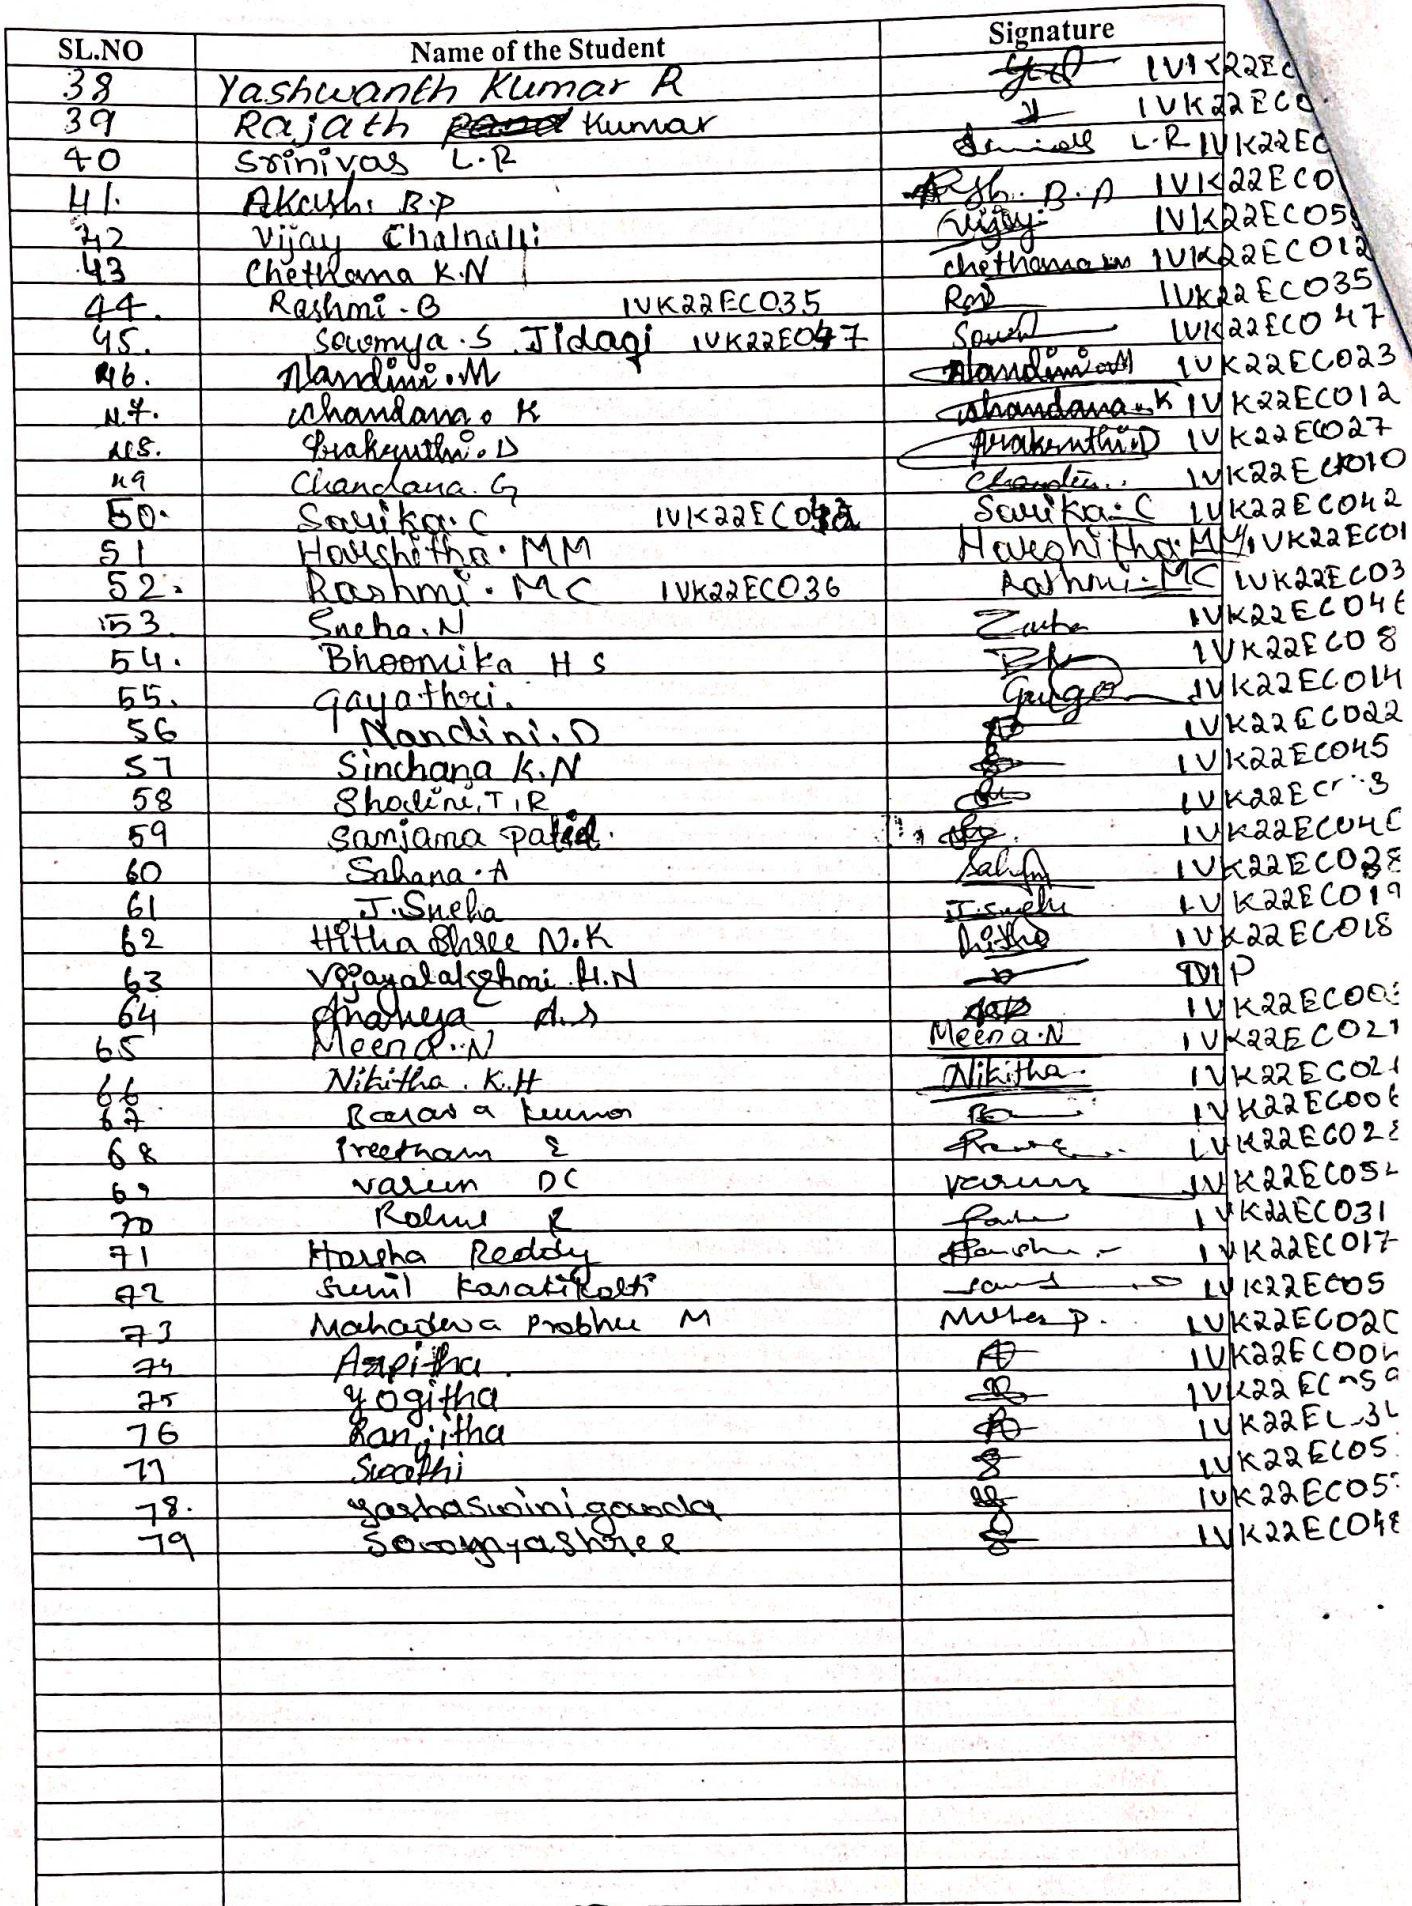 SL.NO Name of the Student Signature
38 Yashwanth Kumar R 1VK22EC
39 Rajath Kumar 1VK22ECO
40 Srinivas L.R L.R 1VK22EC
41. Akash. B.P B.P 1VK22ECO
42 Vijay Chalnalli Vijay. 1VK22ECO5
43 Chethana K.N Chethana KN 1VK22ECO12
44. Rashmi.B 1VK22ECO35 1VK22ECO35
45. Sowmya.S Jidagi 1VK22EO47 1VK22ECO47
46. Nandini.M Nandini.M 1VK22ECO23
47. Chandana. K Chandana.K 1VK22ECO12
48. Prakruthi.D Prakruthi.D 1VK22ECO27
49 Chandana.G 1VK22ECO10
50. Sarika.C 1VK22ECO42 Sarika.C 1VK22ECO42
51 Harshitha.MM Harshitha.MM 1VK22ECO1
52. Rashmi.MC 1VK22ECO36 Rashmi.MC 1VK22ECO3
53. Sneha.N 1VK22ECO46
54. Bhoomika H S 1VK22ECO8
55. Gayathri. 1VK22ECO14
56 Nandini.D 1VK22ECO22
57 Sinchana K.N 1VK22ECO45
58 Shalini.T.R 1VK22EC
59 Sanjama Patil. 1VK22ECO4
60 Sahana.A 1VK22ECO38
61 J.Sneha J.Sneha 1VK22ECO19
62 Hitha Shree N.K hitha 1VK22ECO18
63 Vijayalakshmi.H.N DIP
64 Ananya A.S 1VK22ECOO
65 Meena.N Meena.N 1VK22ECO21
66 Nikitha.K.H Nikitha. 1VK22ECO2
67 Basava Kumar 1VK22ECOO6
68 Preetham E 1VK22ECO2
69 Varun DC Varun 1VK22ECO5
70 Rahul R 1VK22ECO31
71 Harsha Reddy 1VK22ECO17
72 Sunil Karatikatti 1VK22ECO5
73 Mahadeva Prabhu M 1VK22ECO2
74 Arpitha. 1VK22ECOO
75 Yogitha 1VK22EC
76 Ranjitha 1VK22EC
77 Swathi 1VK22ECO5
78. Yashaswini gowda 1VK22ECO5
79 Sowmyashree 1VK22ECO48